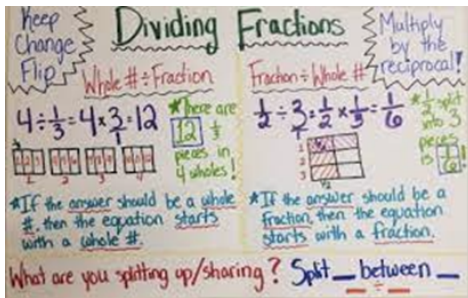 Keep
Change
Flip
Dividing Fractions
Multiply
by the
reciprocal!
Whole # ÷ Fraction
4 ÷ 1/3 = 4 × 3/1 = 12
*There are
12 1/3
pieces in
4 wholes!
1 2 3 4
*If the answer should be a whole
#, then the equation starts
with a whole #.
Fraction ÷ Whole #
1/2 ÷ 3/1 = 1/2 × 1/3 = 1/6
*1/2 split
into 3
pieces
is 1/6!
1
2
3
1/2
*If the answer should be a
fraction, then the equation
starts with a fraction.
What are you splitting up/sharing? Split __ between __
__ ÷ __